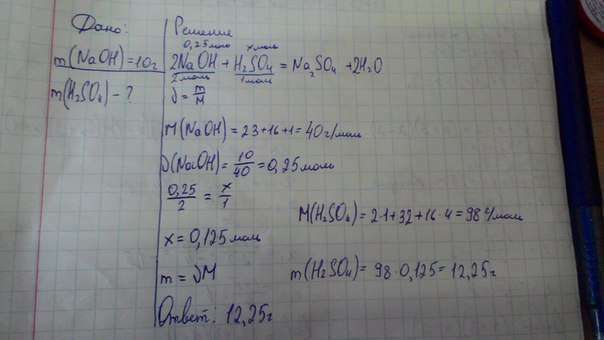 Дано:
m(NaOH)=10г
m(H₂SO₄) - ?
Решение
0,25моль xмоль
2NaOH + H₂SO₄ = Na₂SO₄ + 2H₂O
2моль 1моль
ν = m/M
M(NaOH) = 23+16+1 = 40г/моль
ν(NaOH) = 10/40 = 0,25 моль
0,25/2 = x/1
x = 0,125 моль
m = νM
M(H₂SO₄) = 2·1+32+16·4 = 98 г/моль
m(H₂SO₄) = 98·0,125 = 12,25г
Ответ: 12,25г